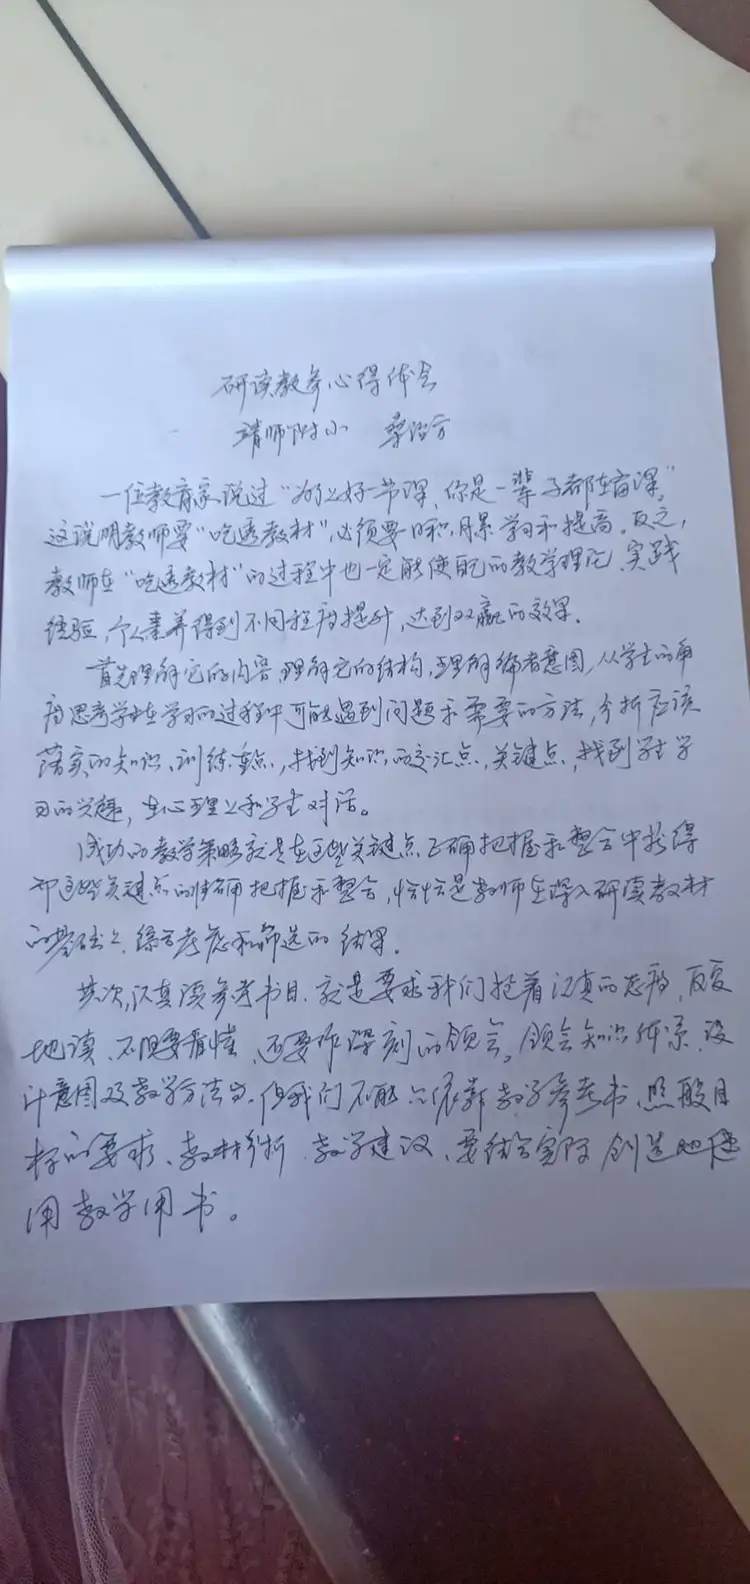 研读教参心得体会
靖师附小 桑治方
一位教育家说过“为上好一节课,你是一辈子都在备课”
这说明教师要“吃透教材”,必须要日积月累学习和提高。反之,
教师在“吃透教材”的过程中也一定能使自己的教学理论、实践
经验,个人素养得到不同程度提升,达到双赢的效果。
首先理解它的内容,理解它的结构,理解编者意图,从学生的角
度思考学生在学习的过程中可能遇到问题和需要的方法,分析应该
落实的知识、训练重点,找到知识的交汇点,关键点,找到学生学
习的兴趣,在心理上和学生对话。
成功的教学策略就是在这些关键点正确把握和整合中获得
而这些关键点的准确把握和整合,恰恰是教师在深入研读教材
的基础上,综合考虑和筛选的结果。
其次,认真读参考书目,就是要求我们抱着认真的态度,反复
地读,不但要看懂,还要作深刻的领会。领会知识体系,设
计意图及教学方法等,但我们不能只依靠教学参考书,照般目
标的要求、教材分析、教学建议,要结合实际创造地使
用教学用书。